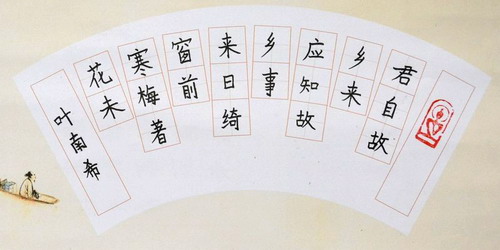 君自故
乡来
应知故
乡事
来日绮
窗前
寒梅著
花未
叶南希